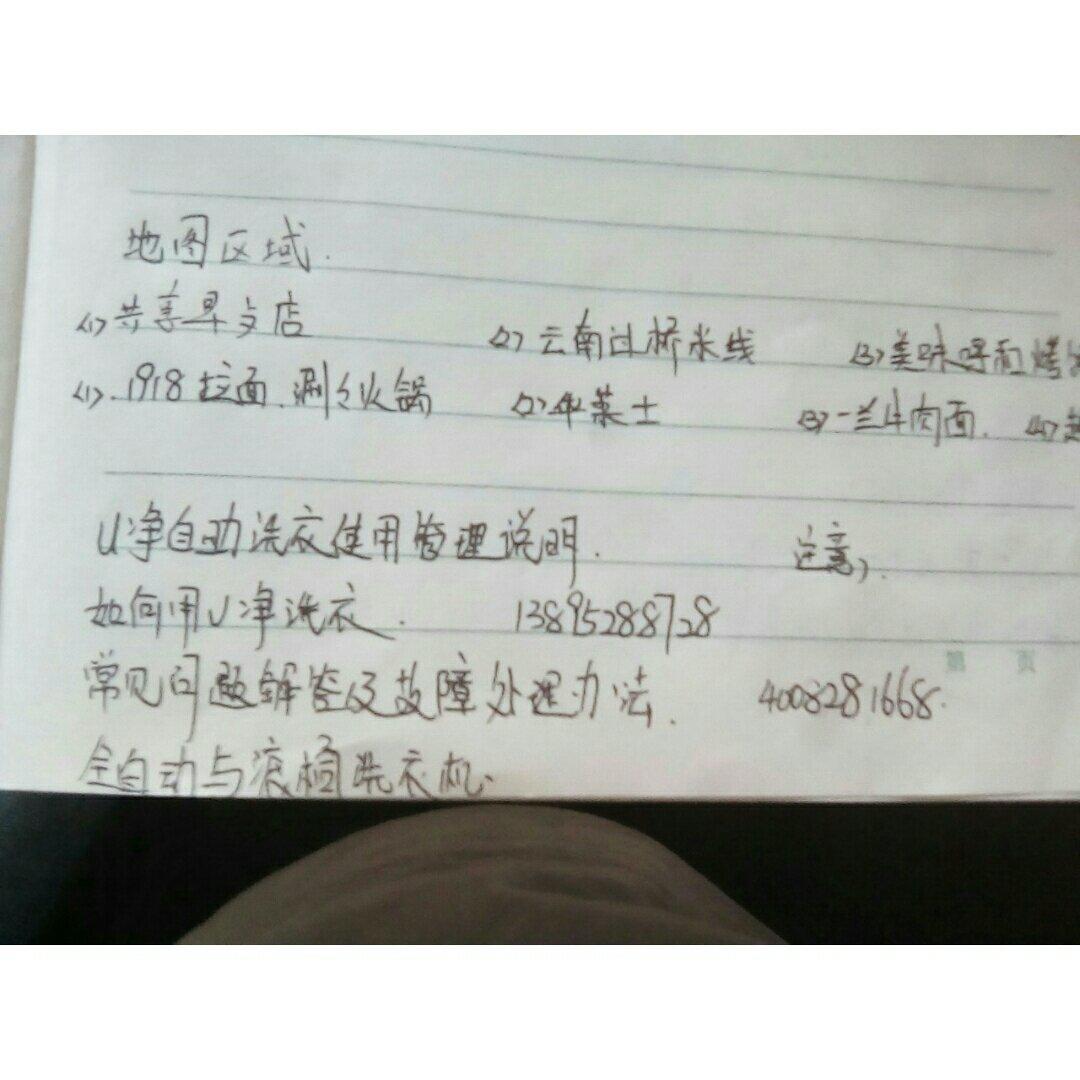 地图区域.
<1> 共享早与店 <2> 云南过桥米线 <3> 美味呼和烤
<1>. 1918拉面.涮々火锅 <2> 华莱士 <3> 一兰牛肉面. <4>
U净自助洗衣使用管理说明. 注意,.
如何用U净洗衣. 13895288728
第 页
常见问题解答及故障处理办法. 4008281668.
全自动与滚桶洗衣机.